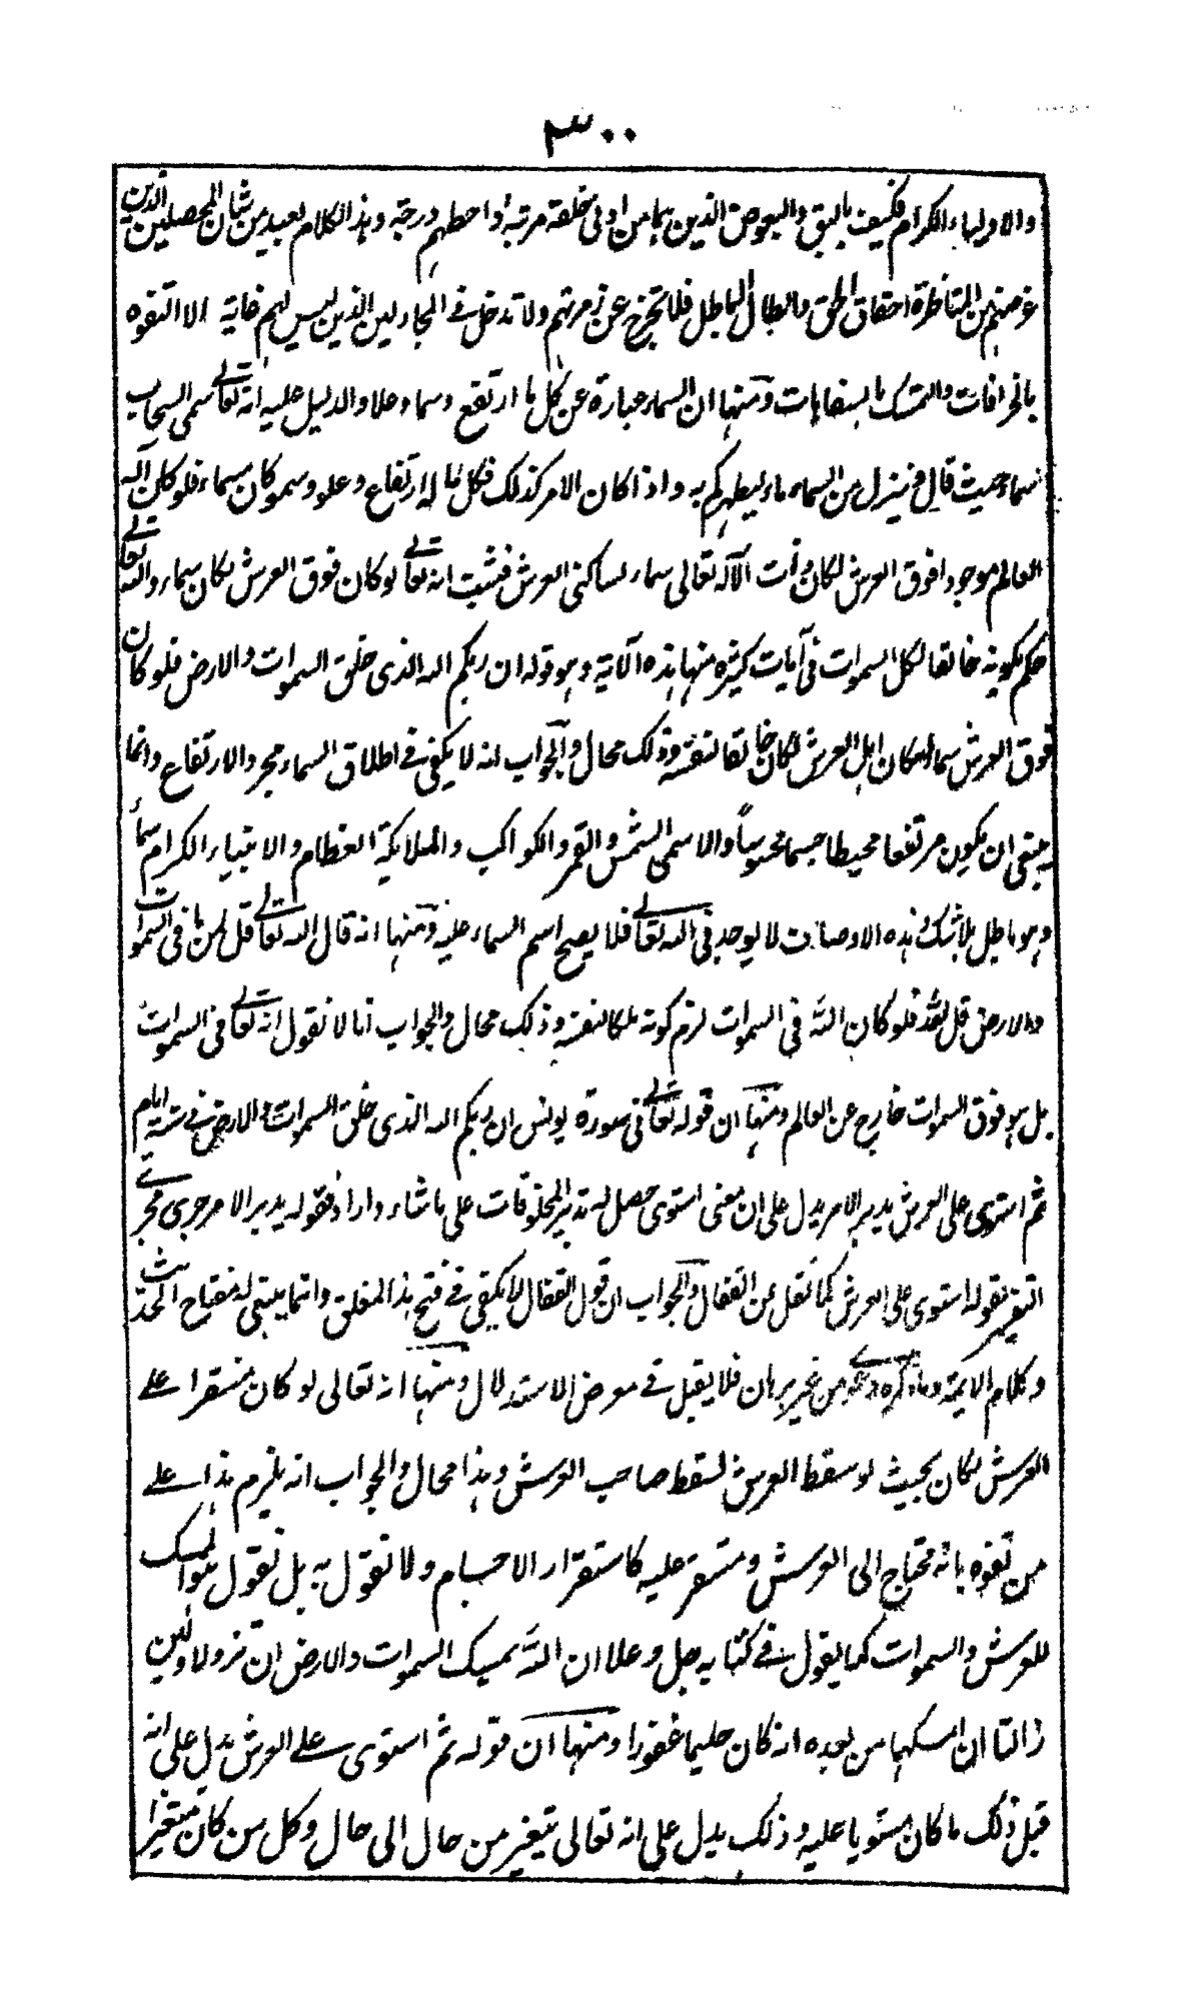 ٣٠٠
والاولياء الكرام فكيف بالبق والبعوض الذين هما من ادنى خلقه مرتبة واحطهم درجة وهذا الكلام بعيد من شان المحصلين الذين
غرضهم من المناظرة احقاق الحق وابطال الباطل فلا تخرج عن زمرتهم ولا تدخل في المجادلين الذين ليس لهم غاية الا التفوه
بالخرافات والتمسك بالسفاهات ومنها ان السماء عبارة عن كل ما ارتفع وسما وعلا والدليل عليه انه تعالى سمى السحاب
سماء حيث قال وينزل من السماء ماء ليطهركم به واذا كان الامر كذلك فكل ما له ارتفاع وعلو وسمو كان سماء فلو كان اله
العالم موجودا فوق العرش لكان ذات الآله تعالى سماء لساكني العرش فثبت انه تعالى لو كان فوق العرش لكان سماء والله تعالى
حكم بكونه خالقا لكل السموات في آيات كثيرة منها هذه الآية وهو قوله ان ربكم الله الذى خلق السموات والارض فلو كان
فوق العرش سماء لسكان اهل العرش لكان خالقا لنفسه وذلك محال والجواب انه لا يكفي في اطلاق السماء مجرد الارتفاع وانما
ينبغي ان يكون مرتفعا محيطا جسما محسوسا والا سمى الشمس والقمر والكواكب والملايكة العظام والانبياء الكرام سماء
وهو باطل بلا شك وهذه الاوصاف لا يوجد في الله تعالى فلا يصح اسم السماء عليه ومنها انه قال الله تعالى قل لمن ما في السموات
والارض قل لله فلو كان الله في السموات لزم كونه ملكا لنفسه وذلك محال والجواب انا لا نقول انه تعالى في السموات
بل هو فوق السموات خارج عن العالم ومنها ان قوله تعالى في سورة يونس ان ربكم الله الذى خلق السموات والارض في ستة ايام
ثم استوى على العرش يدبر الامر يدل على ان معنى استوى حصل له تدبير المخلوقات على ما شاء واراد فقوله يدبر الامر جرى مجرى
التفسير لقوله استوى على العرش كما نقل عن القفال والجواب ان قول القفال لا يكفي في فتح هذا المغلق وانما ينبغي له مفتاح الحديث
وكلام الايمة وما ذكره دعوى من غير برهان فلا يقبل في موضع الاستدلال ومنها انه تعالى لو كان مستقرا على
العرش لكان بحيث لو سقط العرش لسقط صاحب العرش وهذا محال والجواب انه يلزم هذا على
من تفوه بانه محتاج الى العرش ومستقر عليه كاستقرار الاجسام ولا نقول به بل نقول هو الممسك
للعرش والسموات كما يقول في كتابه جل وعلا ان الله يمسك السموات والارض ان تزولا ولئن
زالتا ان امسكهما من بعده انه كان حليما غفورا ومنها ان قوله ثم استوى على العرش يدل على انه
قبل ذلك ما كان مستويا عليه وذلك يدل على انه تعالى يتغير من حال الى حال وكل من كان متغيرا